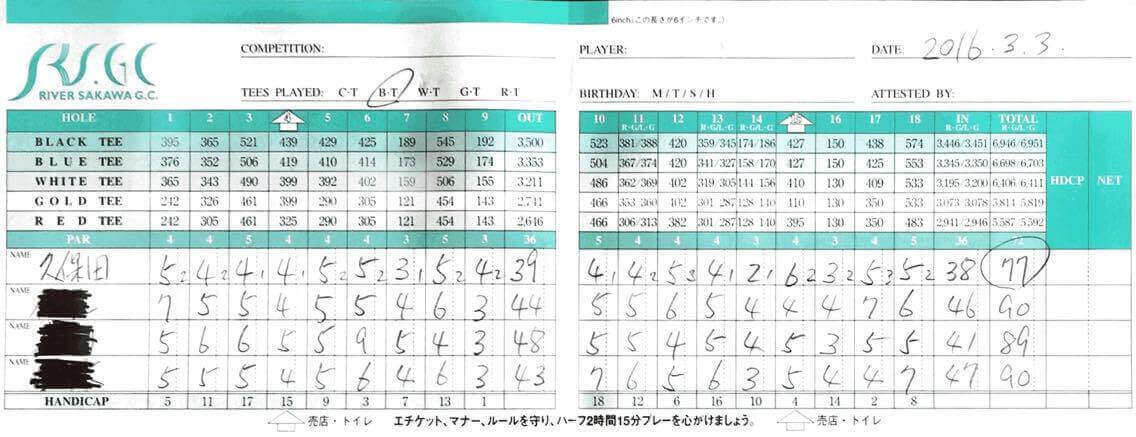 6inch(この長さが6インチです。)
RS.GC
RIVER SAKAWA G.C.
COMPETITION: PLAYER: DATE 2016.3.3.
TEES PLAYED: C·T B·T W·T G·T R·T BIRTHDAY: M / T / S / H ATTESTED BY:
HOLE 1 2 3 4 5 6 7 8 9 OUT 10 11 R·G/L·G 12 13 R·G/L·G 14 R·G/L·G 15 16 17 18 IN R·G/L·G TOTAL R·G/L·G HDCP NET
BLACK TEE 395 365 521 439 429 425 189 545 192 3,500 523 381/388 420 359/345 174/186 427 150 438 574 3,446/3,451 6,946/6,951
BLUE TEE 376 352 506 419 410 414 173 529 174 3,353 504 367/374 420 341/327 158/170 427 150 425 553 3,345/3,350 6,698/6,703
WHITE TEE 365 343 490 399 392 402 159 506 155 3,211 486 362/369 402 319/305 144/156 410 130 409 533 3,195/3,200 6,406/6,411
GOLD TEE 242 326 461 399 290 305 121 454 143 2,741 466 353/360 402 301/287 128/140 410 130 350 533 3,073/3,078 5,814/5,819
RED TEE 242 305 461 325 290 305 121 454 143 2,646 466 306/313 382 301/287 128/140 395 130 350 483 2,941/2,946 5,587/5,592
PAR 4 4 5 4 4 4 3 5 3 36 5 4 4 4 3 4 3 4 5 36 72
NAME 久保田 5 2 4 2 4 1 4 1 5 2 5 2 3 1 5 2 4 2 39 4 1 4 2 5 3 4 1 2 1 6 2 3 2 5 3 5 2 38 77
NAME 7 5 5 4 5 5 4 6 3 44 5 5 6 5 4 4 4 7 6 46 90
NAME 5 6 6 5 5 9 5 4 3 48 5 5 4 5 4 5 3 5 5 41 89
NAME 5 5 5 4 5 6 4 6 3 43 7 6 5 6 3 5 4 4 7 47 90
HANDICAP 5 11 17 15 9 3 7 13 1 18 12 6 16 10 4 14 2 8
売店・トイレ エチケット、マナー、ルールを守り、ハーフ2時間15分プレーを心がけましょう。 売店・トイレ